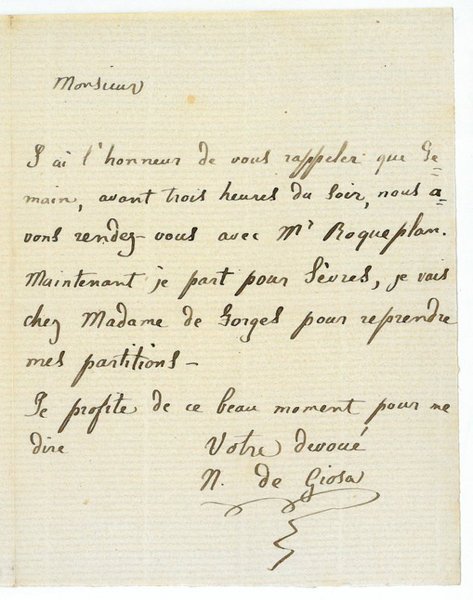 Monsieur
J'ai l'honneur de vous rappeler que De=
main, avant trois heures du soir, nous a=
vons rendez-vous avec Mr Roqueplan.
Maintenant je part pour Sèvres, je vais
chez Madame de Gorges pour reprendre
mes partitions —
Je profite de ce beau moment pour me
dire Votre devoué
N. de Giosa